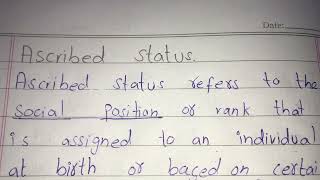 Date:
Ascribed Status.
Ascribed status refers to the
social position or rank that
is assigned to an individual
at birth or based on certai